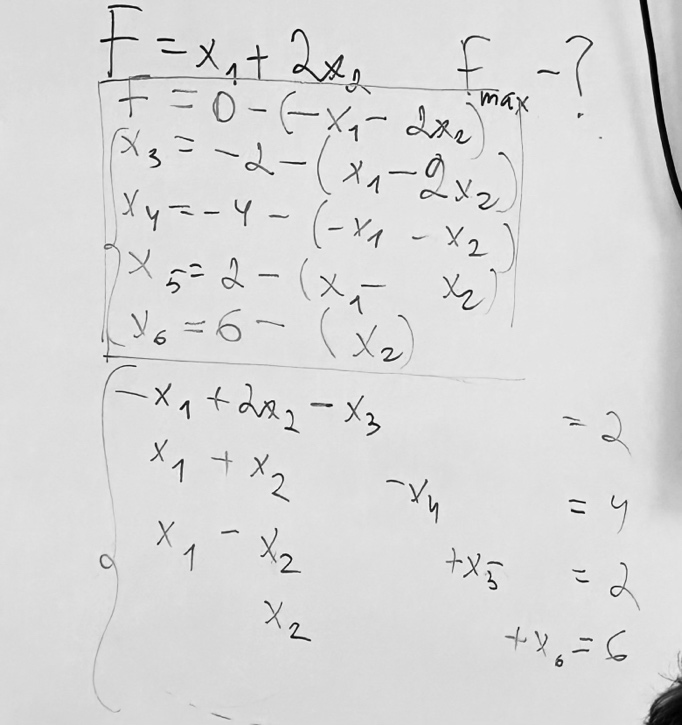 F = x₁ + 2x₂ F max - ?
F = 0 - (-x₁ - 2x₂)
x₃ = -2 - (x₁ - 2x₂)
x₄ = -4 - (-x₁ - x₂)
x₅ = 2 - (x₁ - x₂)
x₆ = 6 - (x₂)
-x₁ + 2x₂ - x₃ = 2
x₁ + x₂ - x₄ = 4
x₁ - x₂ + x₅ = 2
x₂ + x₆ = 6